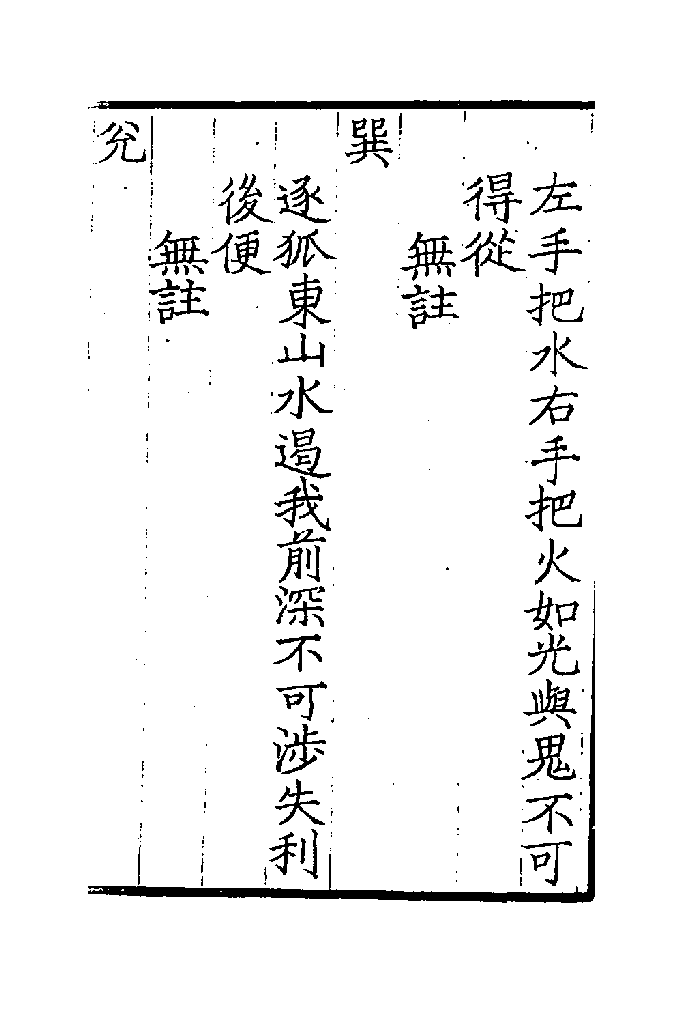 左手把水右手把火如光與鬼不可
得從
無註
巽
逐狐東山水遏我前深不可涉失利
後便
無註
兊